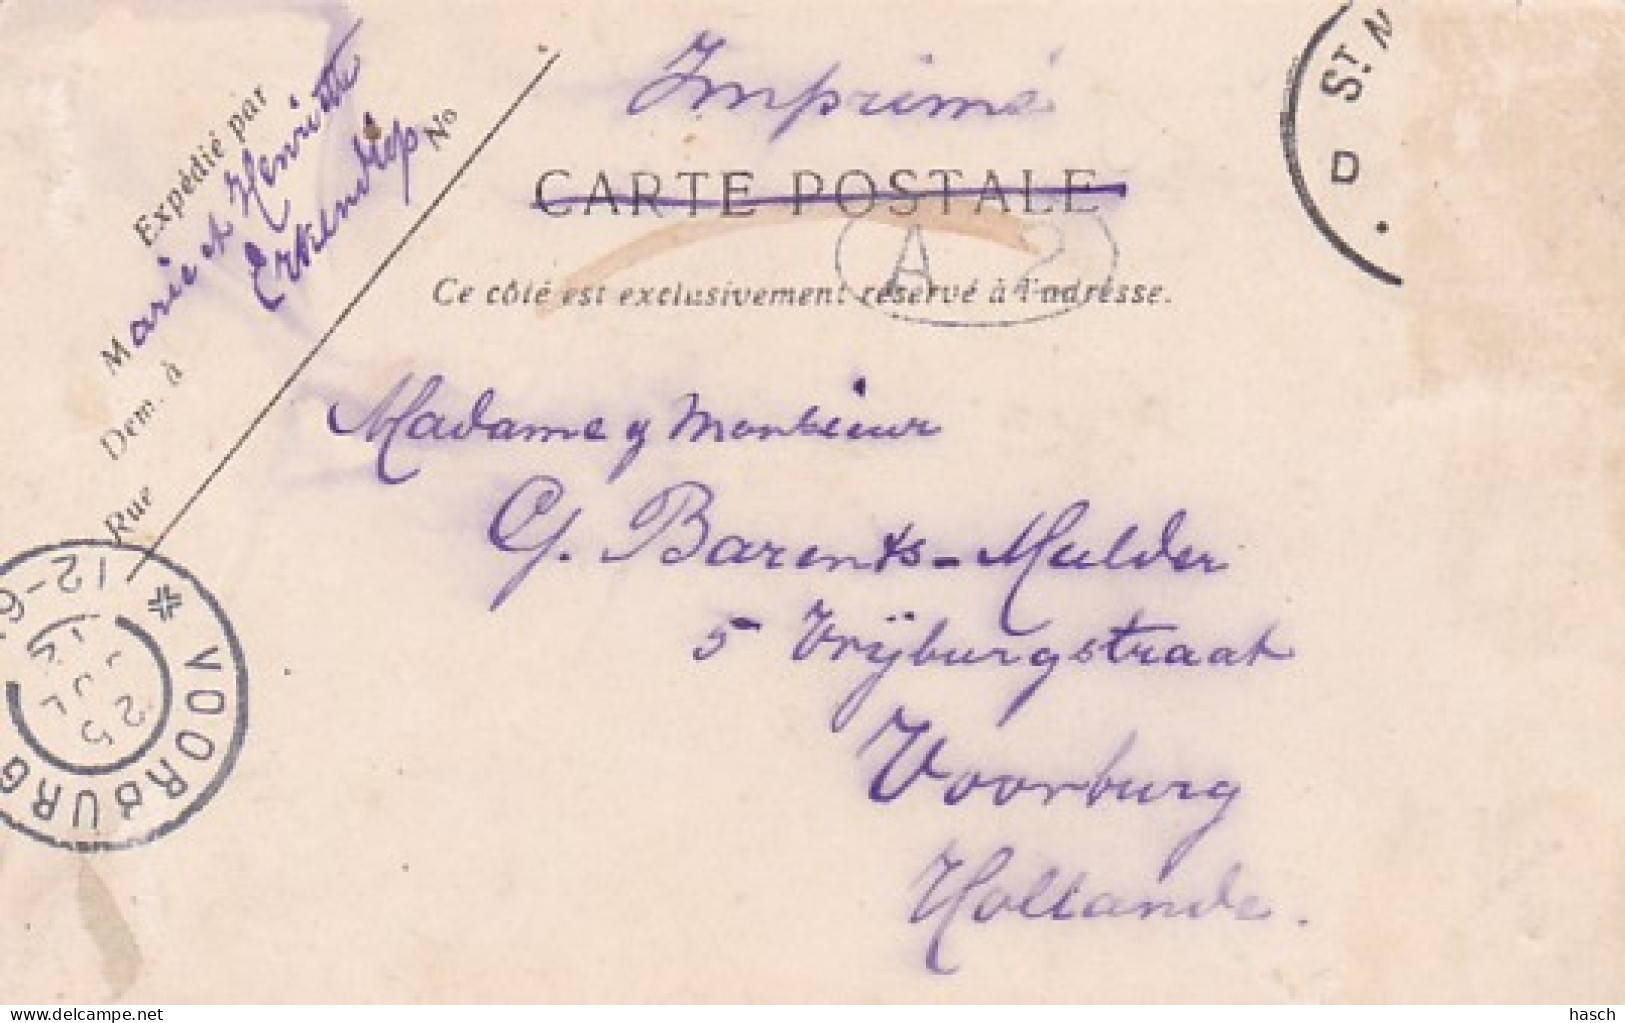 Imprimé
CARTE POSTALE
Ce côté est exclusivement réservé à l'adresse.
Expédié par
Marie et Henriette
Erkelndrop
No
Dem. à
Rue
A 2
ST. N
D
Madame & Monsieur
G. Barents-Mulder
5 Vrÿburgstraat
Voorburg
Hollande.
VOORBURG
12-6
25
JUL
delcampe.net
hasch